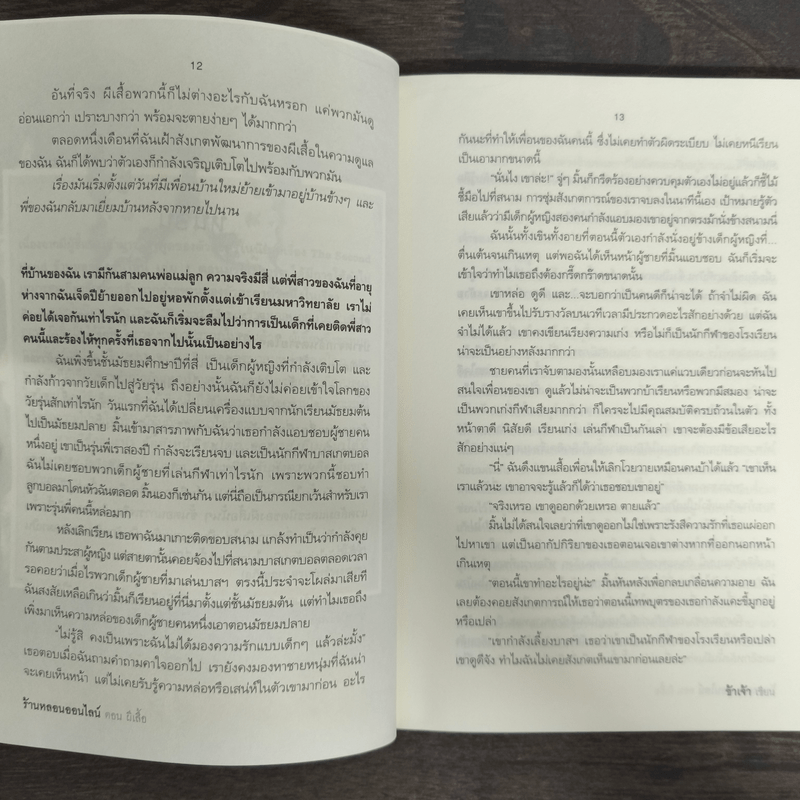 12
อันที่จริง ผีเสื้อพวกนี้ก็ไม่ต่างอะไรกับฉันหรอก แค่พวกมันดู
อ่อนแอกว่า เปราะบางกว่า พร้อมจะตายง่ายๆ ได้มากกว่า
ตลอดหนึ่งเดือนที่ฉันเฝ้าสังเกตพัฒนาการของผีเสื้อในความดูแล
ของฉัน ฉันก็ได้พบว่าตัวเองก็กำลังเจริญเติบโตไปพร้อมกับพวกมัน
เรื่องมันเริ่มตั้งแต่วันที่มีเพื่อนบ้านใหม่ย้ายเข้ามาอยู่บ้านข้างๆ และ
พี่ของฉันกลับมาเยี่ยมบ้านหลังจากหายไปนาน
ที่บ้านของฉัน เรามีกันสามคนพ่อแม่ลูก ความจริงมีสี่ แต่พี่สาวของฉันที่อายุ
ห่างจากฉันเจ็ดปีย้ายออกไปอยู่หอพักตั้งแต่เข้าเรียนมหาวิทยาลัย เราไม่
ค่อยได้เจอกันเท่าไรนัก และฉันก็เริ่มจะลืมไปว่าการเป็นเด็กที่เคยติดพี่สาว
คนนี้และร้องไห้ทุกครั้งที่เธอจากไปนั้นเป็นอย่างไร
ฉันเพิ่งขึ้นชั้นมัธยมศึกษาปีที่สี่ เป็นเด็กผู้หญิงที่กำลังเติบโต และ
กำลังก้าวจากวัยเด็กไปสู่วัยรุ่น ถึงอย่างนั้นฉันก็ยังไม่ค่อยเข้าใจโลกของ
วัยรุ่นสักเท่าไรนัก วันแรกที่ฉันได้เปลี่ยนเครื่องแบบจากนักเรียนมัธยมต้น
ไปเป็นมัธยมปลาย มิ้นเข้ามาสารภาพกับฉันว่าเธอกำลังแอบชอบผู้ชายคน
หนึ่งอยู่ เขาเป็นรุ่นพี่เราสองปี กำลังจะเรียนจบ และเป็นนักกีฬาบาสเกตบอล
ฉันไม่เคยชอบพวกเด็กผู้ชายที่เล่นกีฬาเท่าไรนัก เพราะพวกนี้ชอบทำ
ลูกบอลมาโดนหัวฉันตลอด มิ้นเองก็เช่นกัน แต่นี่ถือเป็นกรณียกเว้นสำหรับเรา
เพราะรุ่นพี่คนนี้หล่อมาก
หลังเลิกเรียน เธอพาฉันมาเกาะติดขอบสนาม แกล้งทำเป็นว่ากำลังคุย
กันตามประสาผู้หญิง แต่สายตานั้นคอยจ้องไปที่สนามบาสเกตบอลตลอดเวลา
รอคอยว่าเมื่อไรพวกเด็กผู้ชายที่มาเล่นบาสฯ ตรงนี้ประจำจะโผล่มาเสียที
ฉันสงสัยเหลือเกินว่ามิ้นก็เรียนอยู่ที่นี่มาตั้งแต่ชั้นมัธยมต้น แต่ทำไมเธอถึง
เพิ่งมาเห็นความหล่อของเด็กผู้ชายคนหนึ่งเอาตอนมัธยมปลาย
"ไม่รู้สิ คงเป็นเพราะฉันไม่ได้มองความรักแบบเด็กๆ แล้วล่ะมั้ง"
เธอตอบเมื่อฉันถามคำถามคาใจออกไป เรายังคงมองหาชายหนุ่มที่ฉันน่า
จะเคยเห็นหน้า แต่ไม่เคยรับรู้ความหล่อหรือเสน่ห์ในตัวเขามาก่อน อะไร
ร้านหลอนออนไลน์ ตอน ผีเสื้อ
13
กันนะที่ทำให้เพื่อนของฉันคนนี้ ซึ่งไม่เคยทำตัวผิดระเบียบ ไม่เคยหนีเรียน
เป็นเอามากขนาดนี้
"นั่นไง เขาล่ะ!" จู่ๆ มิ้นก็กรีดร้องอย่างควบคุมตัวเองไม่อยู่แล้วก็ชี้ไม้
ชี้มือไปที่สนาม การซุ่มสังเกตการณ์ของเราจบลงในนาทีนี้เอง เป้าหมายรู้ตัว
เสียแล้วว่ามีเด็กผู้หญิงสองคนกำลังแอบมองเขาอยู่จากตรงม้านั่งข้างสนามนี่
ฉันนั้นทั้งเขินทั้งอายที่ตอนนี้ตัวเองกำลังนั่งอยู่ข้างเด็กผู้หญิงที่...
ตื่นเต้นจนเกินเหตุ แต่พอฉันได้เห็นหน้าผู้ชายที่มิ้นแอบชอบ ฉันก็เริ่มจะ
เข้าใจว่าทำไมเธอถึงต้องกรี๊ดกร๊าดขนาดนั้น
เขาหล่อ ดูดี และ...จะบอกว่าเป็นคนดีก็น่าจะได้ ถ้าจำไม่ผิด ฉัน
เคยเห็นเขาขึ้นไปรับรางวัลบนเวทีเวลามีประกวดอะไรสักอย่างด้วย แต่ฉัน
จำไม่ได้แล้ว เขาคงเขียนเรียงความเก่ง หรือไม่ก็เป็นนักกีฬาของโรงเรียน
น่าจะเป็นอย่างหลังมากกว่า
ชายคนที่เราจับตามองนั้นเหลือบมองเราแค่แวบเดียวก่อนจะหันไป
สนใจเพื่อนของเขา ดูแล้วไม่น่าจะเป็นพวกบ้าเรียนหรือพวกมีสมอง น่าจะ
เป็นพวกเก่งกีฬาเสียมากกว่า ก็ใครจะไปมีคุณสมบัติครบถ้วนในตัว ทั้ง
หน้าตาดี นิสัยดี เรียนเก่ง เล่นกีฬาเป็นกันเล่า เขาจะต้องมีข้อเสียอะไร
สักอย่างแน่ๆ
"นี่" ฉันดึงแขนเสื้อเพื่อนให้เลิกโวยวายเหมือนคนบ้าได้แล้ว "เขาเห็น
เราแล้วนะ เขาอาจจะรู้แล้วก็ได้ว่าเธอชอบเขาอยู่"
"จริงเหรอ เขาดูออกด้วยเหรอ ตายแล้ว"
มิ้นไม่ได้สนใจเลยว่าที่เขาดูออกไม่ใช่เพราะรังสีความรักที่เธอแผ่ออก
ไปหาเขา แต่เป็นอากัปกิริยาของเธอตอนเจอเขาต่างหากที่ออกนอกหน้า
เกินเหตุ
"ตอนนี้เขาทำอะไรอยู่น่ะ" มิ้นหันหลังเพื่อกลบเกลื่อนความอาย ฉัน
เลยต้องคอยสังเกตการณ์ให้เธอว่าตอนนี้เทพบุตรของเธอกำลังแคะขี้มูกอยู่
หรือเปล่า
"เขากำลังเลี้ยงบาสฯ เธอว่าเขาเป็นนักกีฬาของโรงเรียนหรือเปล่า
เขาดูดีจัง ทำไมฉันไม่เคยสังเกตเห็นเขามาก่อนเลยล่ะ"
ข้าเจ้า เขียน